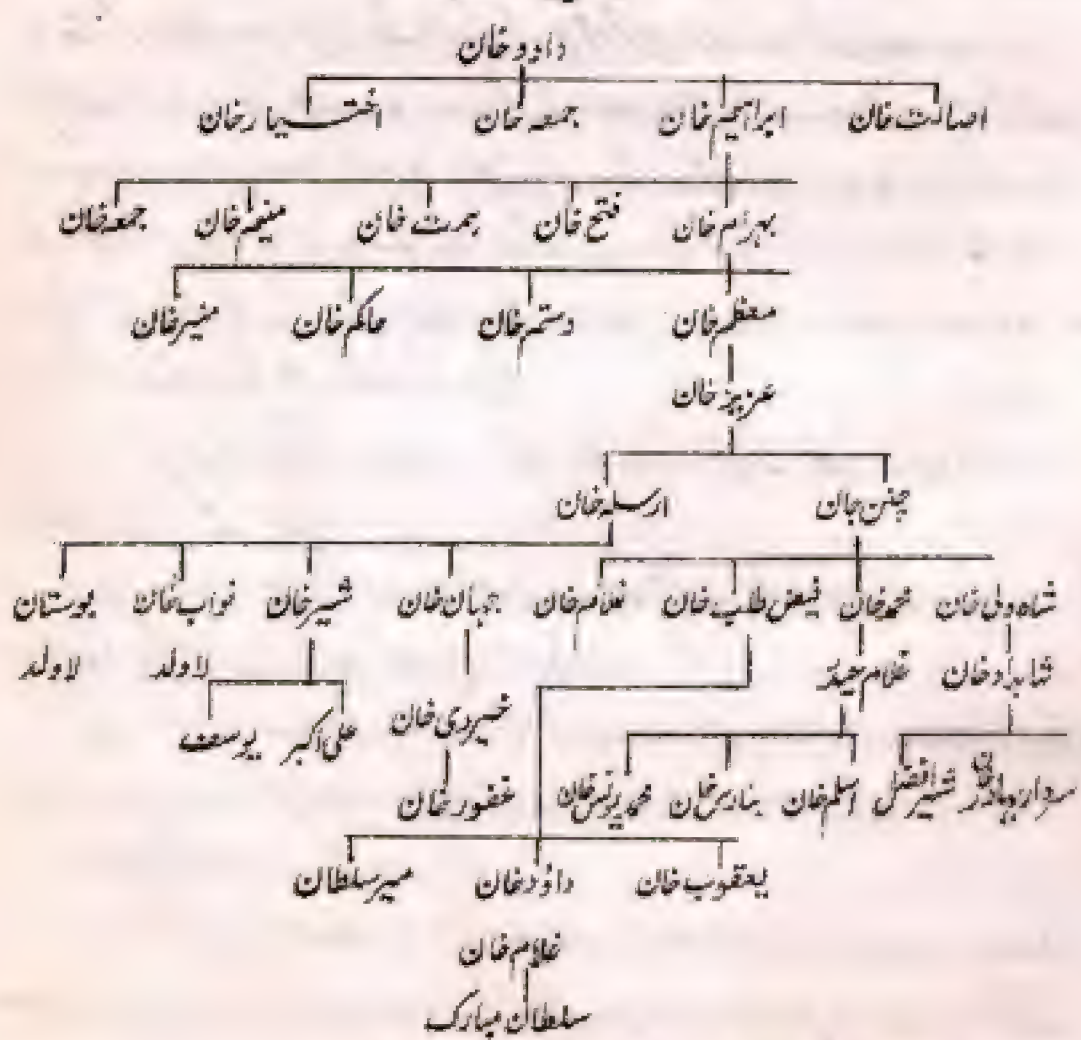 داود خان
اصالت خان ابراہیم خان جمعہ خان اختیار خان
بہرام خان فتح خان ہمت خان جمعہ خان
معظم خان دستم خان حاکم خان منیر خان
عزیز خان
چنن جان ارسلہ خان
شاہ ولی خان محمد خان فیض طلب خان غلام خان جہان خان شیر خان نواب خان بوستان
شاہداد خان غلام لاولد لاولد
خان علی اکبر یوسف
سردار بہادر شیر افضل اسلم خان بنارس خان محمد یونس خان غفور خان
یعقوب خان داؤد خان میر سلطان
غلام خان
سلطان مبارک